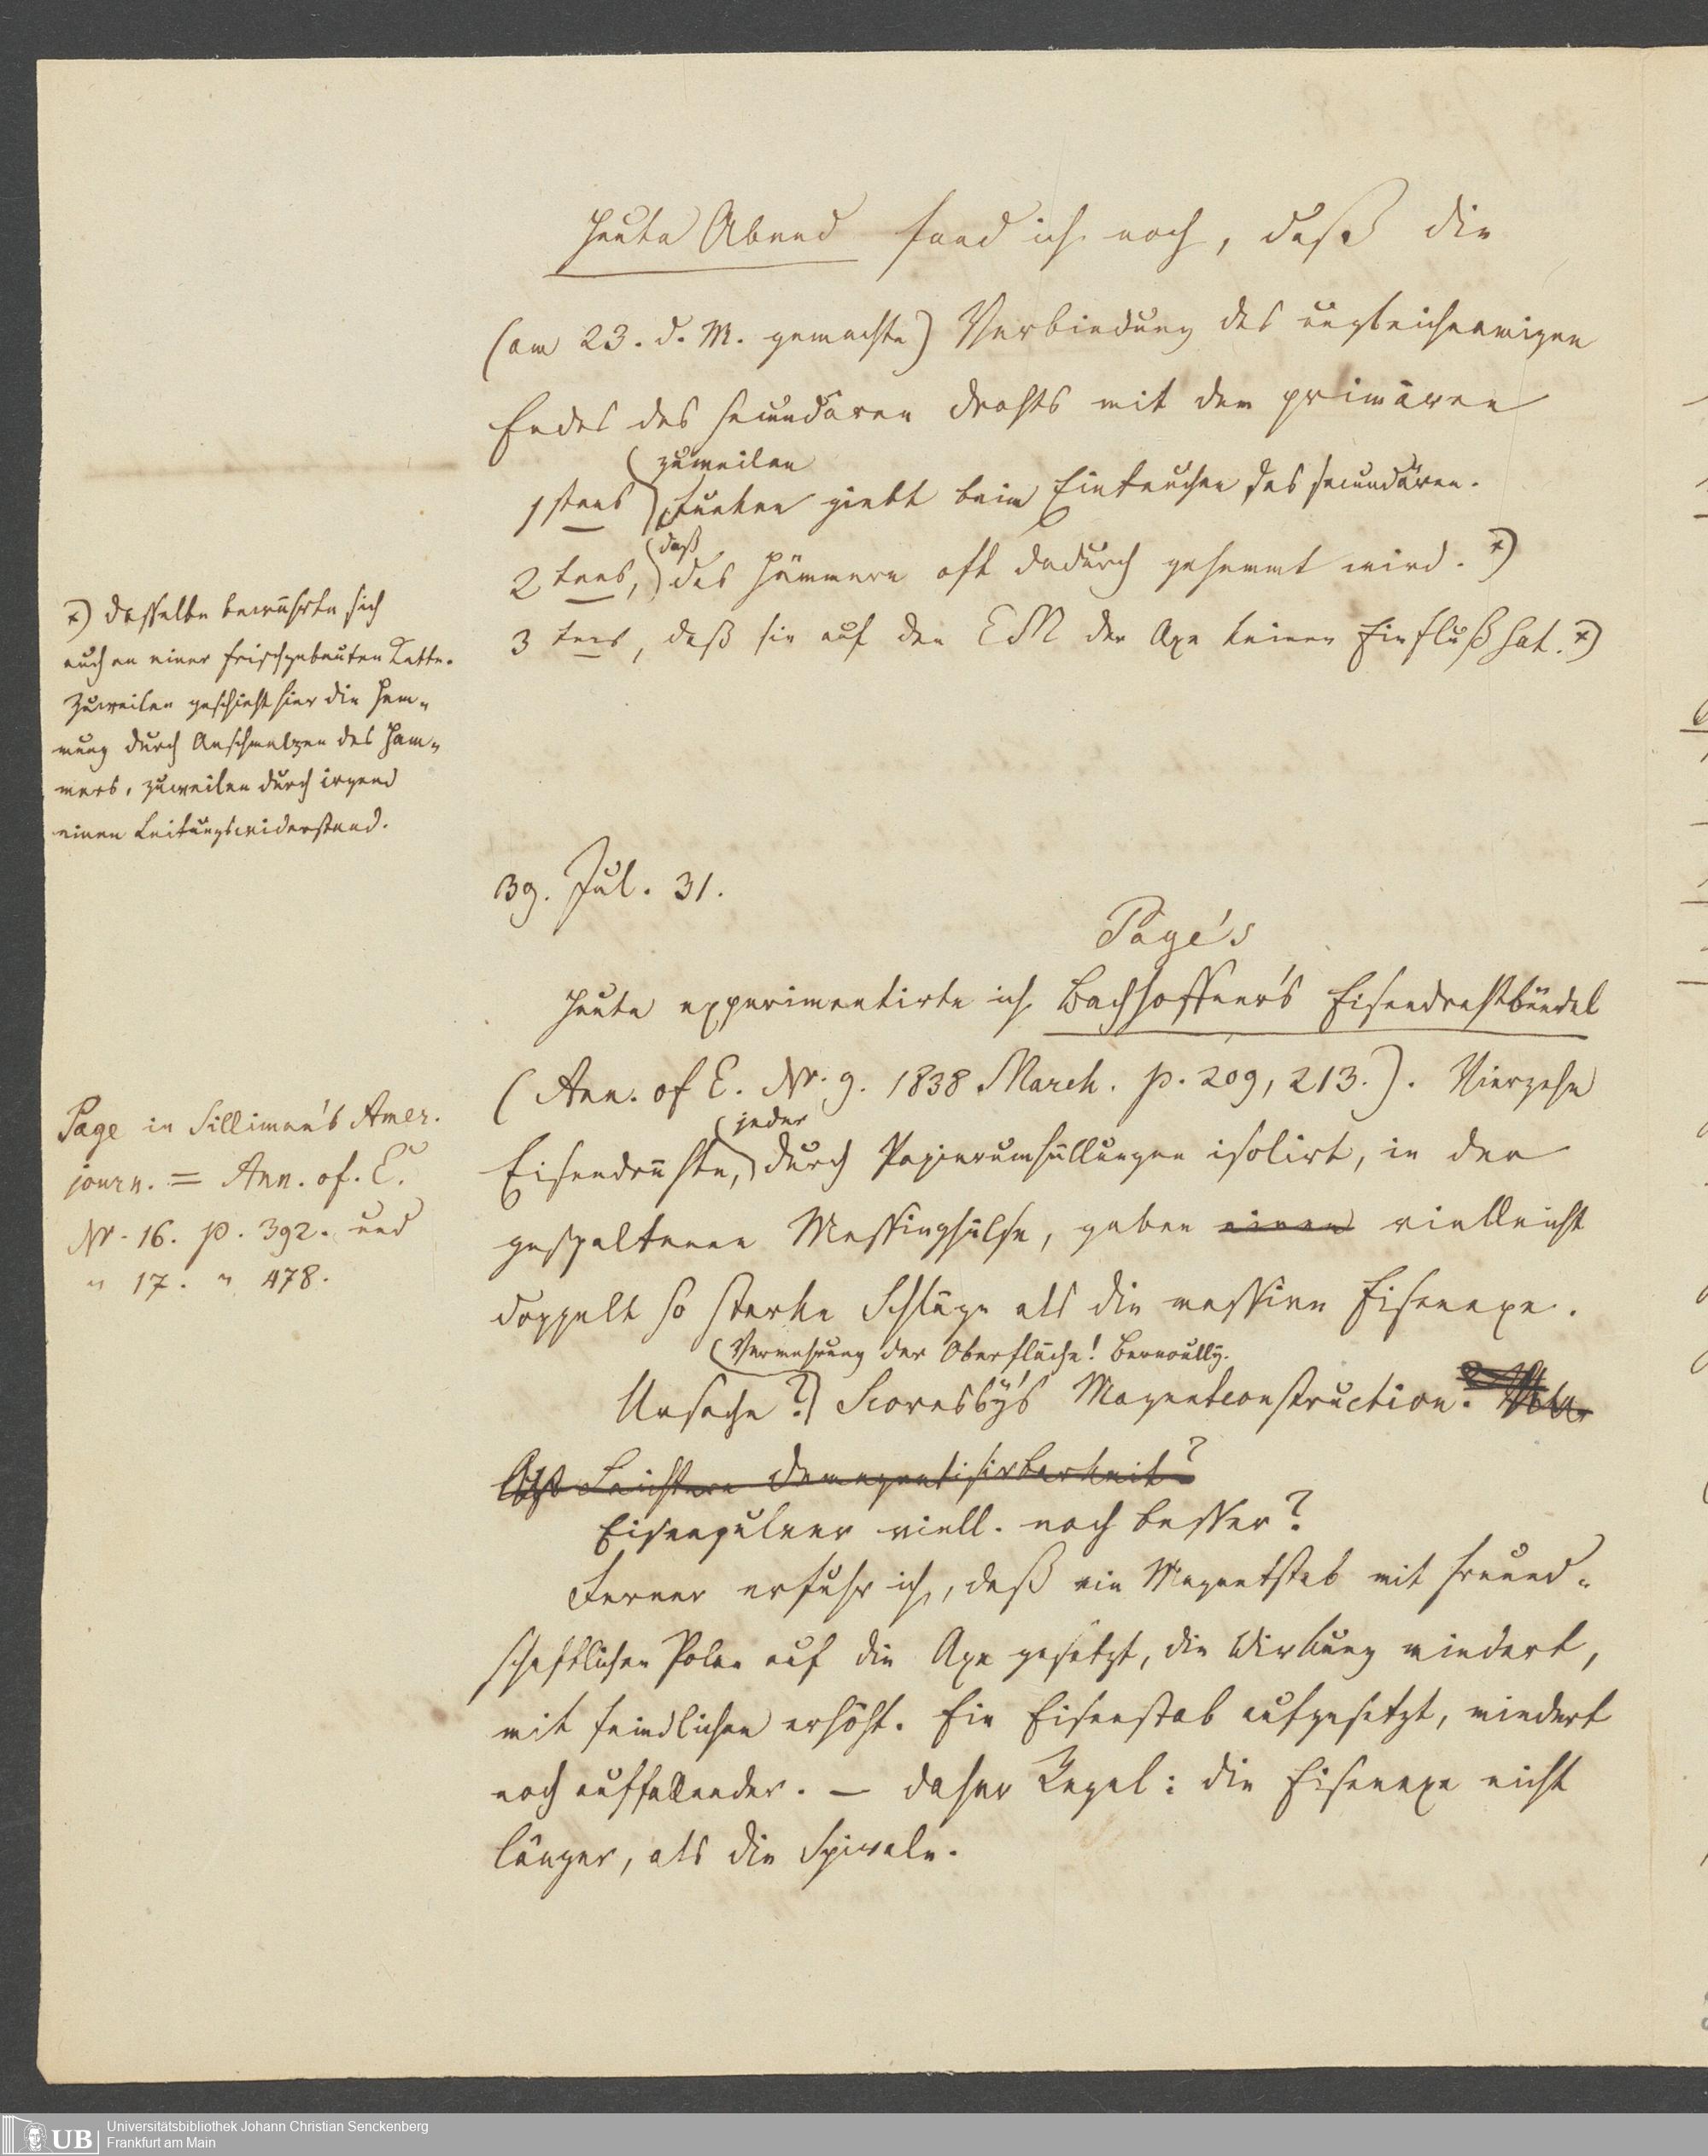 Heute Abend fand ich noch, daß die
(am 23. d. M. gemachte) Verbindung des ungleichnamigen
Endes des secundären Drahts mit dem primären
zuweilen
1stens Funken giebt beim Eintauchen des secundären.
daß
2tens, das Hämmern oft dadurch gehemmt wird. *)
3tens, daß sie auf den EM der Axe keinen Einfluß hat. *)
*) dasselbe bewährte sich
auch an einer frischgebauten Kette.
Zuweilen geschieht hier die Hem-
mung durch Anschmelzen des Ham-
mers, zuweilen durch irgend
einen Leitungswiderstand.
39. Jul. 31.
Page's
Heute experimentirte ich Bachhoffner's Eisendrahtbündel
(Ann. of E. Nr. 9. 1838 March. p. 209, 213.). Vierzehn
jeder
Eisendrähte, durch Papierumhüllungen isolirt, in der
gespaltenen Messinghülse, gaben einen vielleicht
doppelt so starke Schläge als die massive Eisenaxe.
Vermehrung der Oberfläche! Bernoully.
Ursache? Scoresby's Magnetconstruction.
Leichtere Demagnetisirbarkeit?
Eisenpulver viell. noch besser?
Ferner erfuhr ich, daß ein Magnetstab mit freund-
schaftlichen Polen auf die Axe gesetzt, die Wirkung mindert,
mit feindlichen erhöht. Ein Eisenstab aufgesetzt, mindert
noch auffallender. — Daher Regel: die Eisenaxe nicht
länger, als die Spirale.
Page in Silliman's Amer.
journ. = Ann. of. E.
Nr. 16. p. 392. und
" 17. " 478.
UB
Universitätsbibliothek Johann Christian Senckenberg
Frankfurt am Main